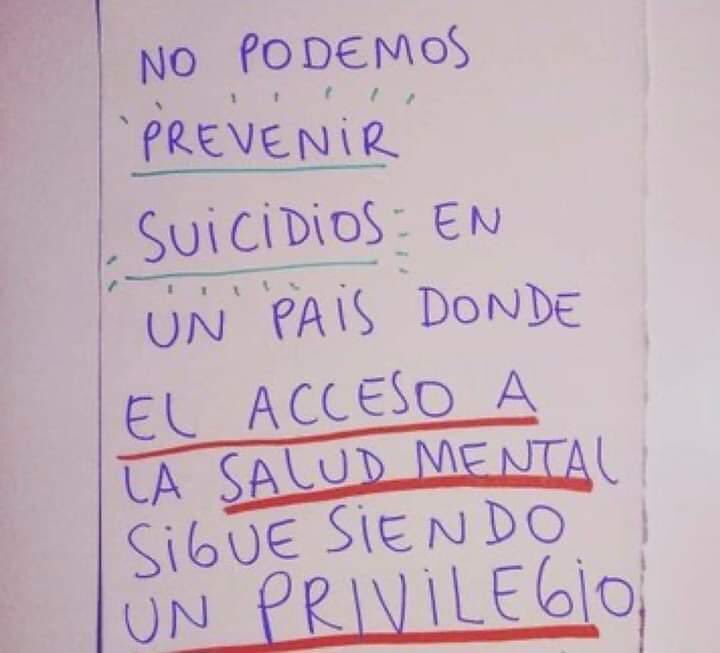 NO PODEMOS
PREVENIR
SUICIDIOS EN
UN PAIS DONDE
EL ACCESO A
LA SALUD MENTAL
SIGUE SIENDO
UN PRIVILEGIO